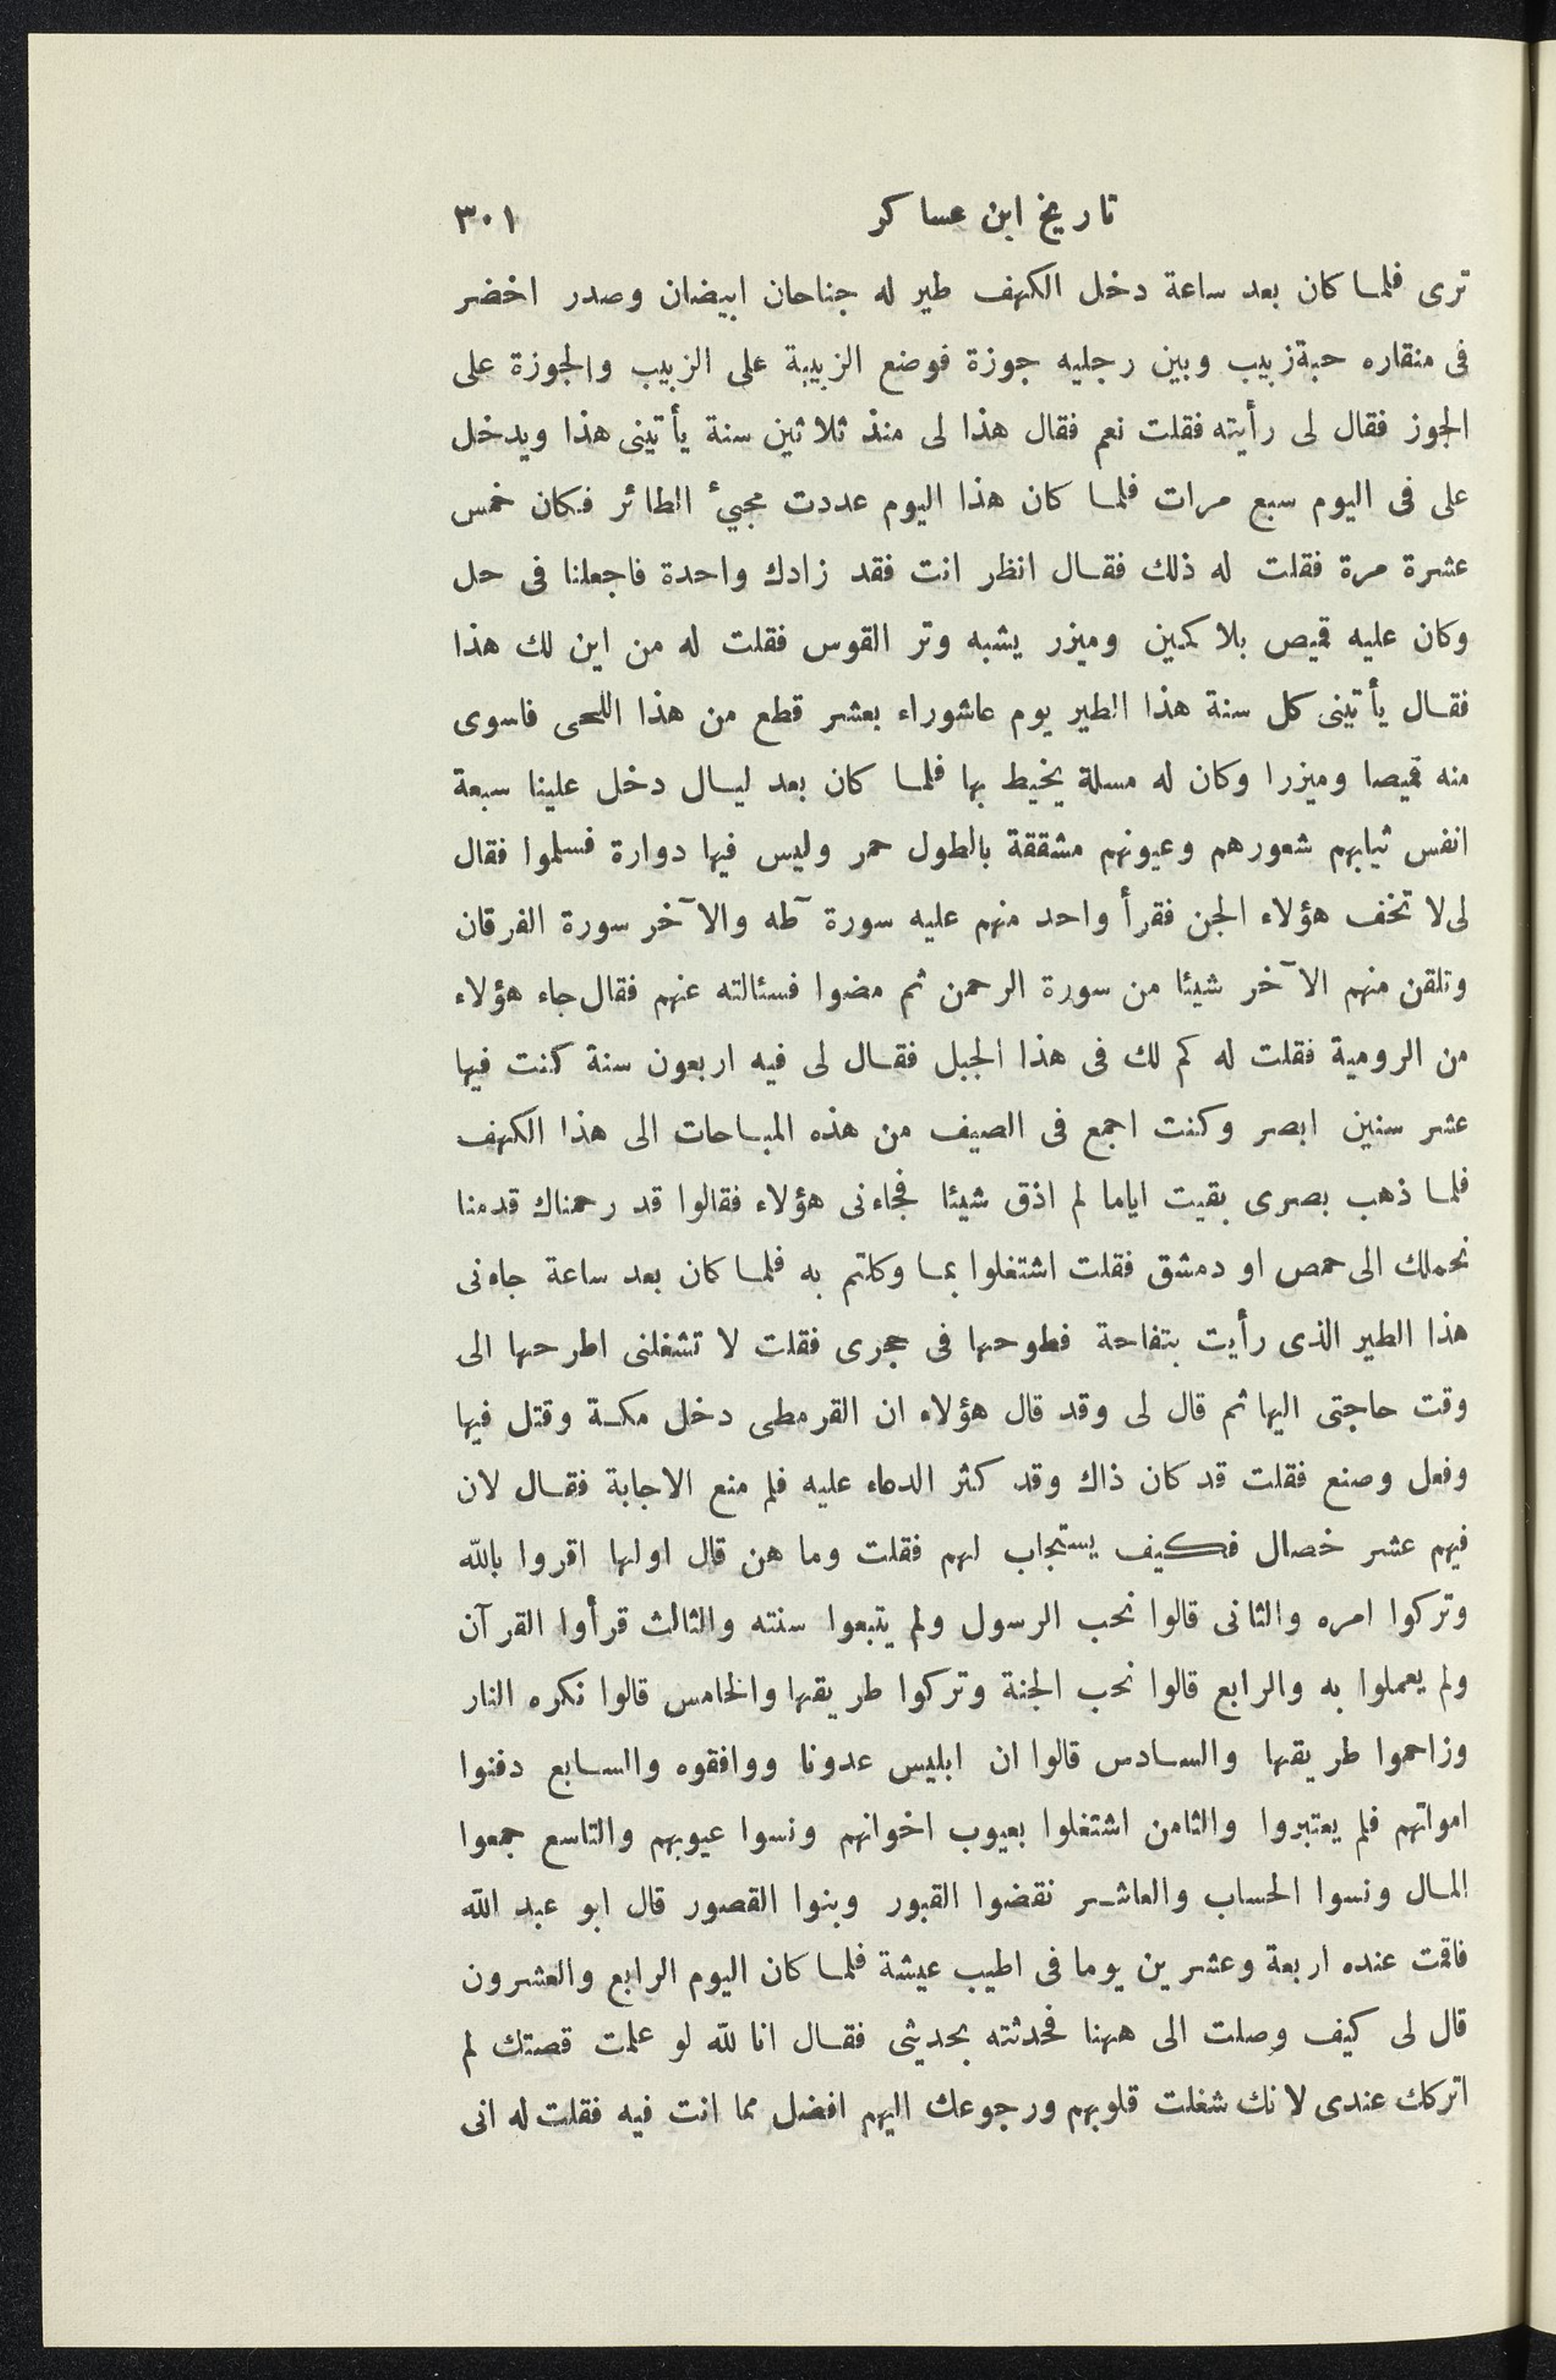 تاريخ ابن عساكر ٣٠١
ترى فلما كان بعد ساعة دخل الكهف طير له جناحان ابيضان وصدر اخضر
فى منقاره حبة زبيب وبين رجليه جوزة فوضع الزبيبة على الزبيب والجوزة على
الجوز فقال لى رأيته فقلت نعم فقال هذا لى منذ ثلاثين سنة يأتينى هذا ويدخل
على فى اليوم سبع مرات فلما كان هذا اليوم عددت مجيئ الطائر فكان خمس
عشرة مرة فقلت له ذلك فقال انظر انت فقد زادك واحدة فاجعلنا فى حل
وكان عليه قميص بلا كمين وميزر يشبه وتر القوس فقلت له من اين لك هذا
فقال يأتينى كل سنة هذا الطير يوم عاشوراء بعشر قطع من هذا اللحى فاسوى
منه قميصا وميزرا وكان له مسلة يخيط بها فلما كان بعد ليال دخل علينا سبعة
انفس ثيابهم شعورهم وعيونهم مشققة بالطول حمر وليس فيها دوارة فسلموا فقال
لى لا تخف هؤلاء الجن فقرأ واحد منهم عليه سورة طٓه والآخر سورة الفرقان
وتلقن منهم الآخر شيئا من سورة الرحمن ثم مضوا فسئالته عنهم فقال جاء هؤلاء
من الرومية فقلت له كم لك فى هذا الجبل فقال لى فيه اربعون سنة كنت فيها
عشر سنين ابصر وكنت اجمع فى الصيف من هذه المباحات الى هذا الكهف
فلما ذهب بصرى بقيت اياما لم اذق شيئا فجاءنى هؤلاء فقالوا قد رحمناك قدمنا
نحملك الى حمص او دمشق فقلت اشتغلوا بما وكلتم به فلما كان بعد ساعة جاءنى
هذا الطير الذى رأيت بتفاحة فطوحها فى حجرى فقلت لا تشغلنى اطرحها الى
وقت حاجتى اليها ثم قال لى وقد قال هؤلاء ان القرمطى دخل مكة وقتل فيها
وفعل وصنع فقلت قد كان ذاك وقد كثر الدعاء عليه فلم منع الاجابة فقال لان
فيهم عشر خصال فكيف يستجاب لهم فقلت وما هن قال اولها اقروا بالله
وتركوا امره والثانى قالوا نحب الرسول ولم يتبعوا سنته والثالث قرأوا القرآن
ولم يعملوا به والرابع قالوا نحب الجنة وتركوا طريقها والخامس قالوا نكره النار
وزاحموا طريقها والسادس قالوا ان ابليس عدونا ووافقوه والسابع دفنوا
امواتهم فلم يعتبروا والثامن اشتغلوا بعيوب اخوانهم ونسوا عيوبهم والتاسع جمعوا
المال ونسوا الحساب والعاشر نقضوا القبور وبنوا القصور قال ابو عبد الله
فاقمت عنده اربعة وعشرين يوما فى اطيب عيشة فلما كان اليوم الرابع والعشرون
قال لى كيف وصلت الى ههنا فحدثته بحديثى فقال انا لله لو علمت قصتك لم
اتركك عندى لانك شغلت قلوبهم ورجوعك اليهم افضل مما انت فيه فقلت له انى